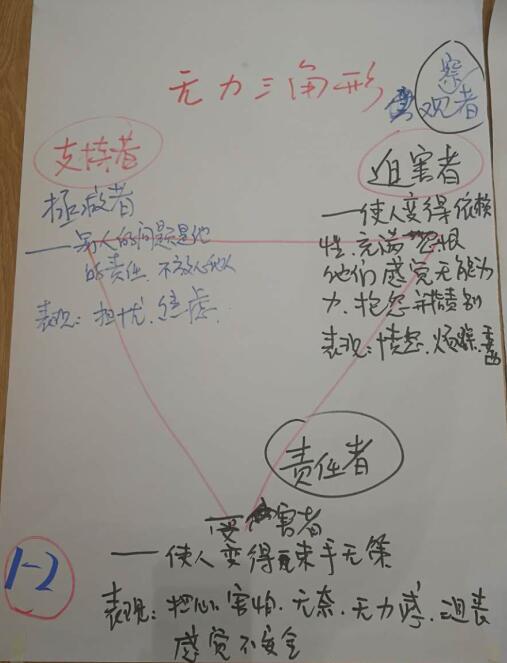 无力三角形
观察者
支持者
迫害者
拯救者
——别人的问题是他
的责任.不放心他人
表现：担忧.焦虑.
——使人变得依赖
性.充满怨恨
他们感觉无能为
力.抱怨并指责别
表现：愤怒.烦躁.
责任者
受害者
——使人变得束手无策
表现：担心.害怕.无奈.无力感.沮丧
感觉不安全
1-2